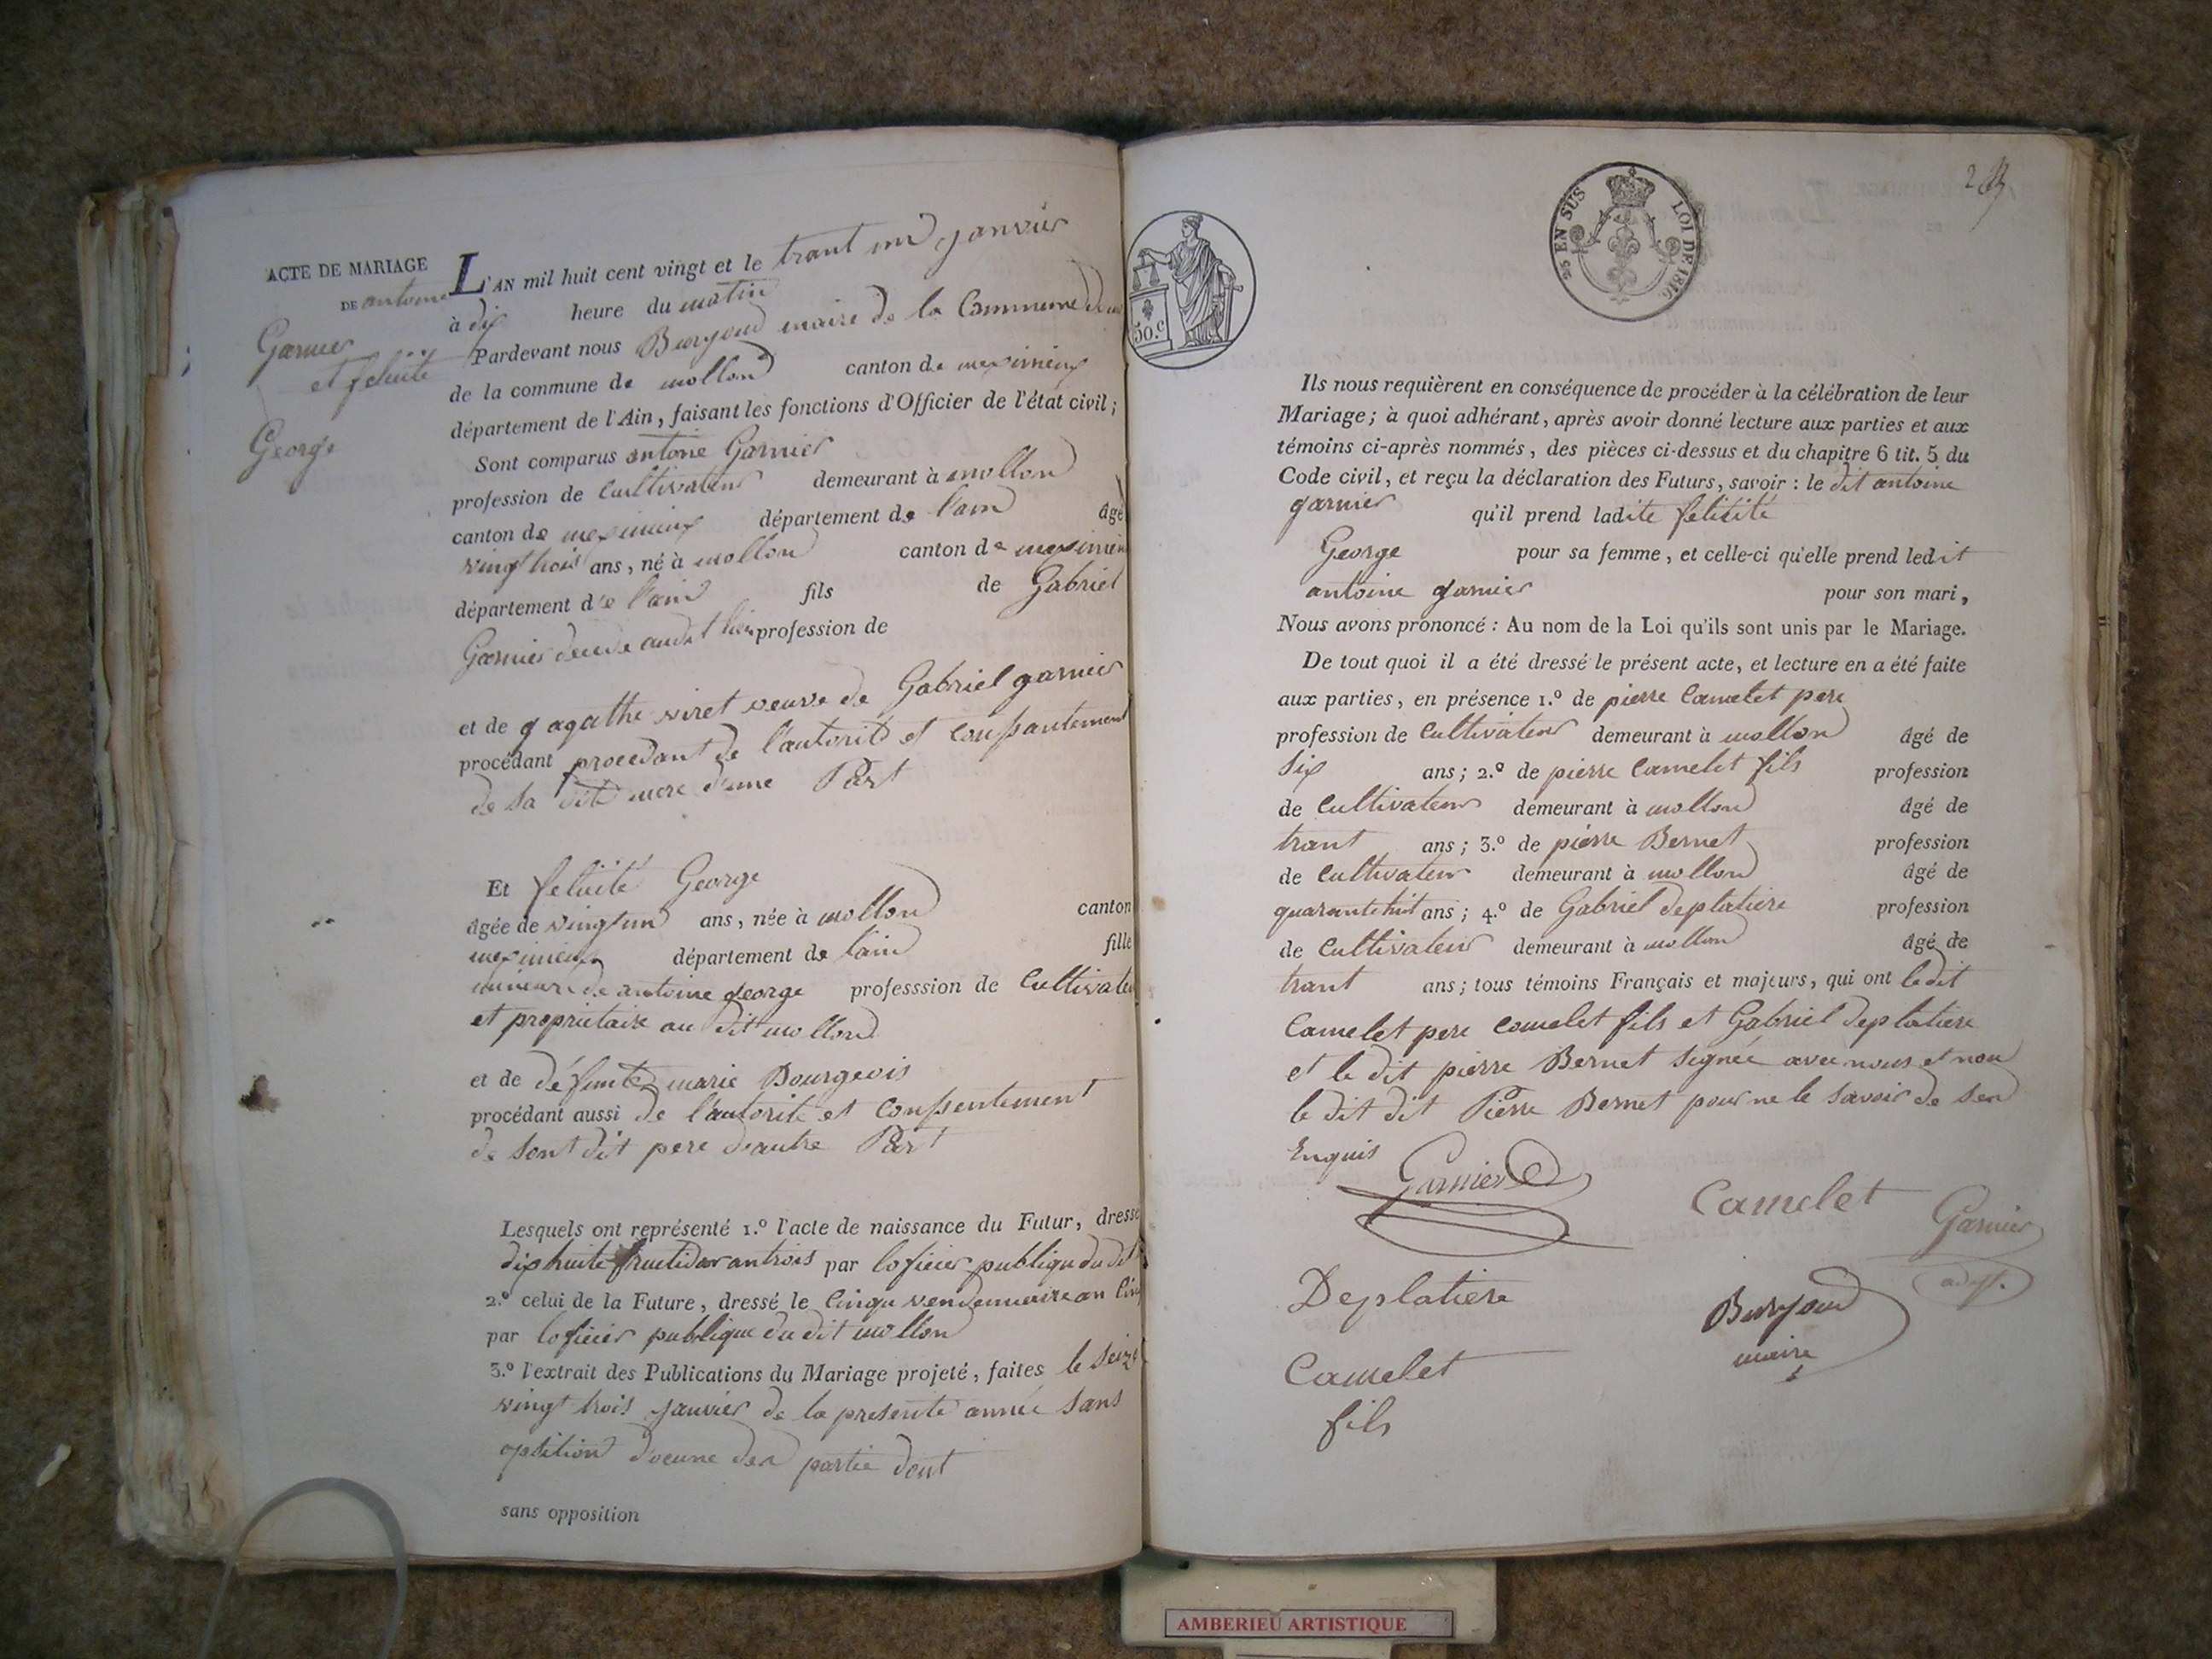 ACTE DE MARIAGE
DE antoine
Garnier
et felicité
George
L'AN mil huit cent vingt et le trant un janvier
à dix heure du matin
Pardevant nous Buryoud maire de la Commune
de la commune de mollon canton de meximieux
département de l'Ain, faisant les fonctions d'Officier de l'état civil;
Sont comparus antoine Garnier
profession de Cultivateur demeurant à mollon
canton de meximieux département de l'ain âgé
vingt trois ans, né à mollon canton de meximieu
département de l'ain fils de Gabriel
Garnier audit lieu profession de
et de agathe viret veuve de Gabriel garnier
procédant procedant de l'autorité et conssantement
de sa dite mere d'une Part
Et felicité George
âgée de vingt un ans, née à mollon canton
meximieux département de l'ain fille
mineure de antoine george professsion de Cultivateu
et proprietaire au dit mollon
et de défunte marie Bourgeois
procédant aussi de l'autorité et conssentement
de sont dit pere d'autre Part
Lesquels ont représenté 1.º l'acte de naissance du Futur, dressé
dix huite fructidor an trois par lofficier publique du dit
2.º celui de la Future, dressé le Cinqu vendemiaire an Cinq
par lofficier publique du dit mollon
3.º l'extrait des Publications du Mariage projeté, faites le seize
vingt trois janvier de la presente année sans
opsition d'ocune des partie dont
sans opposition
50.c
25 EN SUS LOI DE 1816
Ils nous requièrent en conséquence de procéder à la célébration de leur
Mariage; à quoi adhérant, après avoir donné lecture aux parties et aux
témoins ci-après nommés, des pièces ci-dessus et du chapitre 6 tit. 5 du
Code civil, et reçu la déclaration des Futurs, savoir : le dit antoine
garnier qu'il prend ladite felicité
George pour sa femme, et celle-ci qu'elle prend ledit
antoine garnier pour son mari,
Nous avons prononcé : Au nom de la Loi qu'ils sont unis par le Mariage.
De tout quoi il a été dressé le présent acte, et lecture en a été faite
aux parties, en présence 1.º de pierre Camelet pere
profession de Cultivateur demeurant à mollon âgé de
six ans; 2.º de pierre Camelet fils profession
de Cultivateur demeurant à mollon âgé de
trant ans; 3.º de pierre Bernet profession
de Cultivateur demeurant à mollon âgé de
quarantehit ans; 4.º de Gabriel deplatiere profession
de Cultivateur demeurant à mollon âgé de
trant ans; tous témoins Français et majeurs, qui ont le dit
Camelet pere Camelet fils et Gabriel deplatiere
et le dit pierre Bernet signée avec nous et non
le dit dit Pierre Bernet pour ne le savoir de sen
Enquis
Garnier
Camelet
Garnier
adjt.
Deplatiere
Buryoud
maire
Camelet
fils
AMBERIEU ARTISTIQUE